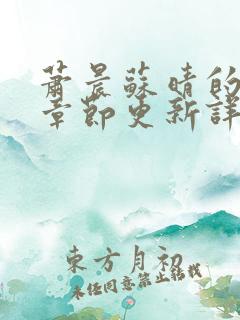 蕭晨蘇晴的
章節更新詳
東方月初
未经同意禁止转载